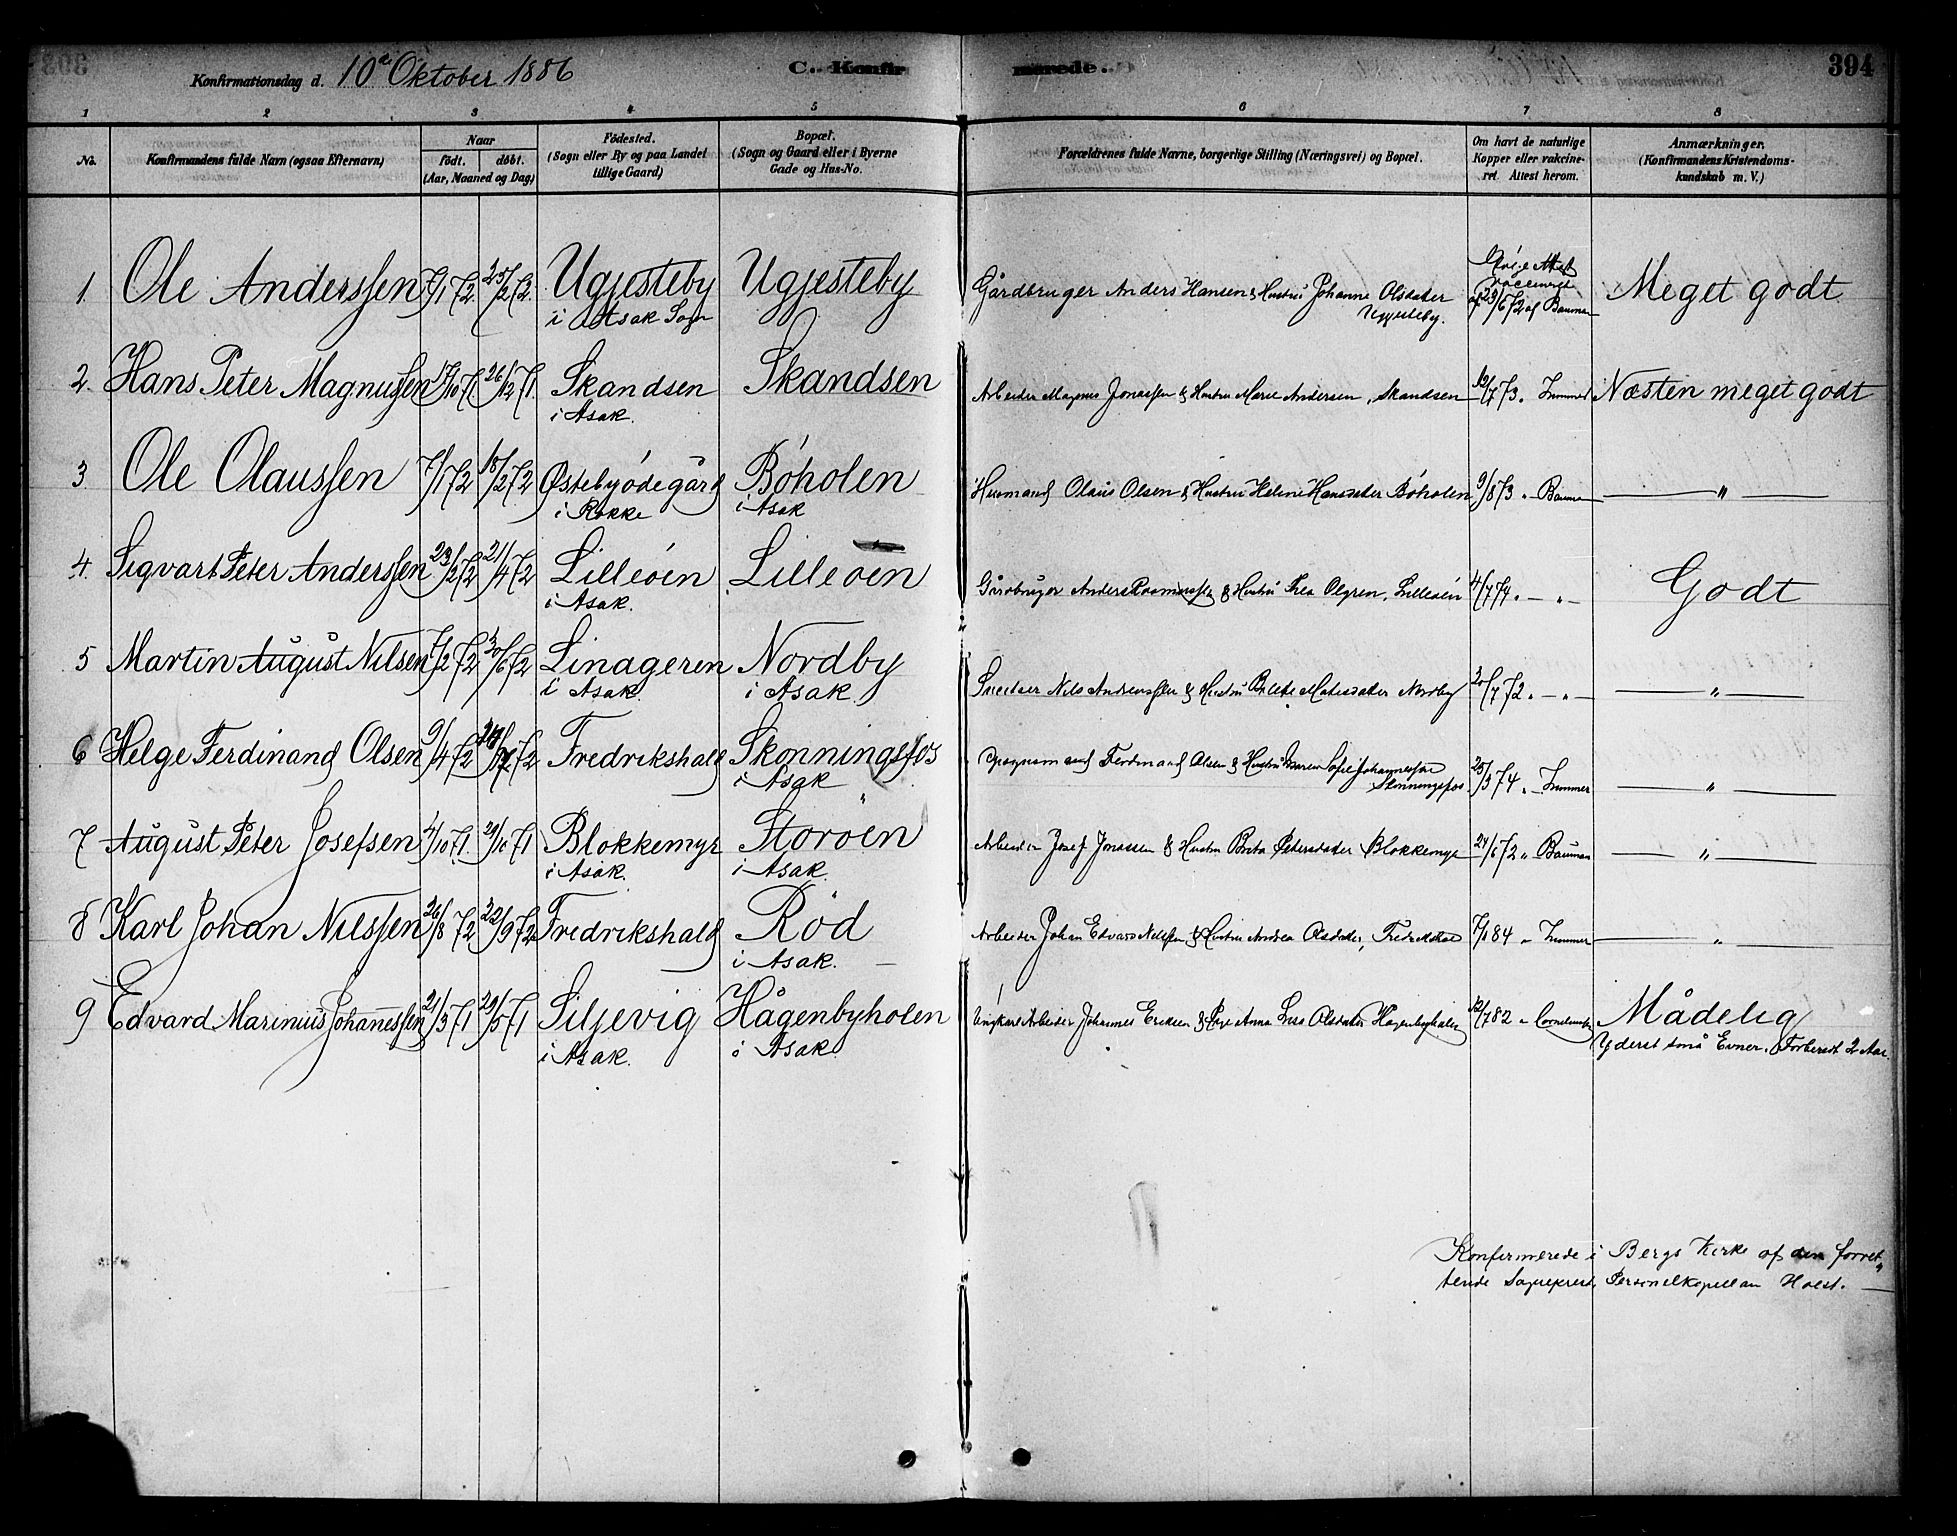 Konfirmationsdag d. 10de Oktober 1886
C. Konfirmerede.
394
1 2 3 4 5 6 7 8
No.
Konfirmandens fulde Navn (ogsaa Efternavn)
Naar
født. døbt.
(Aar, Maaned og Dag)
Fødested.
(Sogn eller By og paa Landet
tillige Gaard)
Bopæl.
(Sogn og Gaard eller i Byerne
Gade og Hus-No.
Forældrenes fulde Navne, borgerlige Stilling (Næringsvei) og Bopæl.
Om havt de naturlige
Kopper eller vakcine-
ret. Attest herom.
Anmærkninger.
(Konfirmandens Kristendoms-
kundskab m. V.)
1. Ole Anderssen 7/1 72 25/2 72 Ugjesteby Ugjesteby Gårdbruger Anders Hansen & Hustru Johanne Olsdatter Meget godt
i Asak Sogn Uggesteby. 29/6 72 af Bauman
2. Hans Peter Magnussen 17/10 71 26/12 71. Skandsen Skandsen Arbeider Magnus Jonassen & Hustru Marie Andersen, Skandsen 12/7 73 „ Zimmer Næsten meget godt
i Asak.
3 Ole Olaussen 7/1 72 18/2 72 Østebyødegård Böholen Husmand Olaus Olsen & Hustru Helene Hansdatter Böholen 9/8 73 „ Bauman — „ —
i Rokke i Asak
4. Sigvart Peter Anderssen 23/2 72 21/4 72 Lilleöen Lilleöen Gårdbruger Anders & Hustru Thea Olgren, Lilleöen 4/7 74 „ — „ — Godt
i Asak.
5 Martin August Nilsen 7/2 72 30/6 72 Linageren Nordby Snedker Nils Andreassen & Hustru Matisdatter Nordby 20/7 72 „ — „ — — „ —
i Asak i Asak
6 Helge Ferdinand Olsen 9/4 72 72 Fredrikshald Skonningsfos Ferdinand Olsen & Hustru Maren Sofie Johannesson 25/3 74 „ — Zimmer — „ —
i Asak Skonningsfos.
7 August Peter Josefsen 4/10 71. 29/10 71 Blokkemyr Storöen Arbeider Josef Jonassen & Hustru Berta Petersdatter Blokkemyr 24/6 72 „ Bauman — „ —
i Asak. i Asak.
8 Karl Johan Nilssen 26/8 72 22/9 72 Fredrikshald Röd Arbeider Johan Edvard Nilssen & Hustru Andrea Olsdatter, Fredrikshald 7/1 84 „ Zimmer — „ —
i Asak.
9 Edvard Marinius Johannessen 21/3 71 29/5 71 Siljevig Hågenbyholen Ungkarl Arbeider Johannes Eriksen & Pige Anna Lise Olsdatter Hagenbyholen 12/7 82 „ Mådelig
i Asak. i Asak Yderst små Evner. Forberedt 2 Aar.
Konfirmerede i Bergs Kirke af den forret-
tende Sogneprest, Personelkapellan Holst.